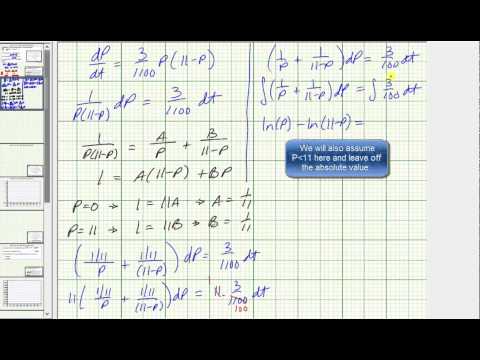 dP/dt = 3/1100 P(11-P)
1/P(11-P) dP = 3/1100 dt
1/P(11-P) = A/P + B/11-P
1 = A(11-P) + BP
P=0 → 1 = 11A → A = 1/11
P=11 → 1 = 11B → B = 1/11
(1/11/P + 1/11/(11-P)) dP = 3/1100 dt
11(1/11/P + 1/11/(11-P)) dP = 11·3/1100 dt
100
(1/P + 1/11-P) dP = 3/100 dt
∫(1/P + 1/11-P) dP = ∫ 3/100 dt
ln(P) - ln(11-P) =
We will also assume
P<11 here and leave off
the absolute value.